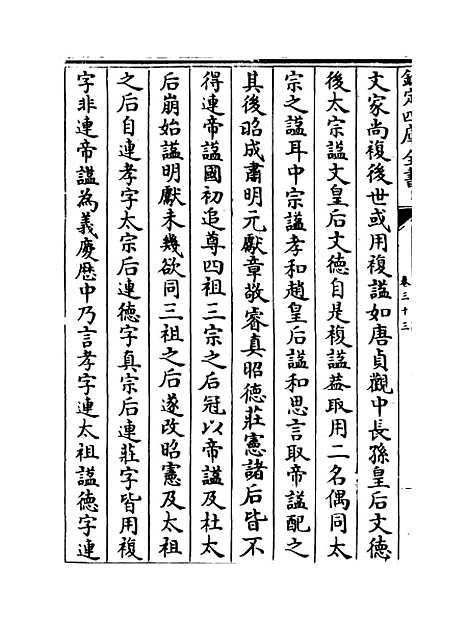 欽定四庫全書
卷三十三
文家尚複後世或用複諡如唐貞觀中長孫皇后文德
後太宗諡文皇后文德自是複諡葢取用二名偶同太
宗之諡耳中宗諡孝和趙皇后諡和思言取帝諡配之
其後昭成肅明元獻章敬睿真昭德莊憲諸后皆不
得連帝諡國初追尊四祖三宗之后冠以帝諡及杜太
后崩始諡明獻未幾欲同三祖之后遂改昭憲及太祖
之后自連孝字太宗后連德字真宗后連莊字皆用複
字非連帝諡為義慶歴中乃言孝字連太祖諡德字連